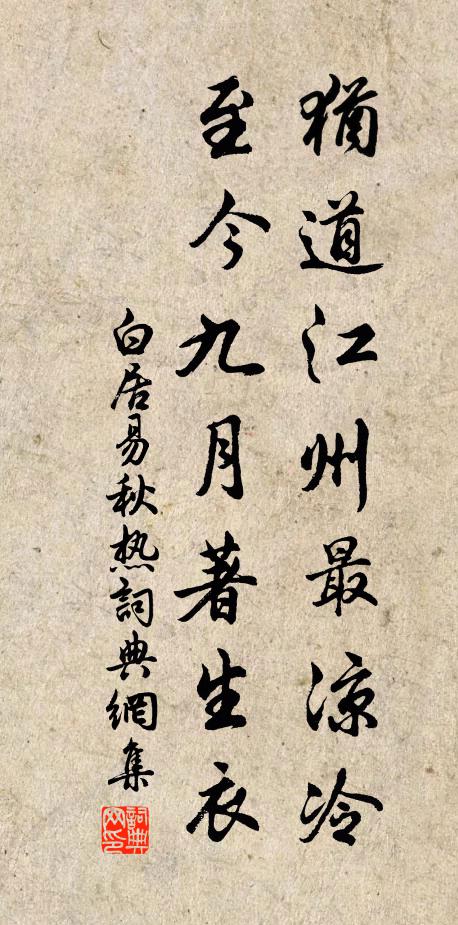 猶道江州最凉冷
至今九月著生衣
白居易秋热詞典網集
詞典网印